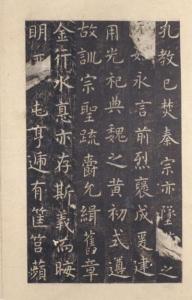 孔教已焚秦宗亦墜之
始永言前烈褒成爰建
用光祀典魏之黃初式遵
故訓宗聖疏爵允緝舊章
金行水德亦存斯義而晦
明屯亨遞有筐筥蘋